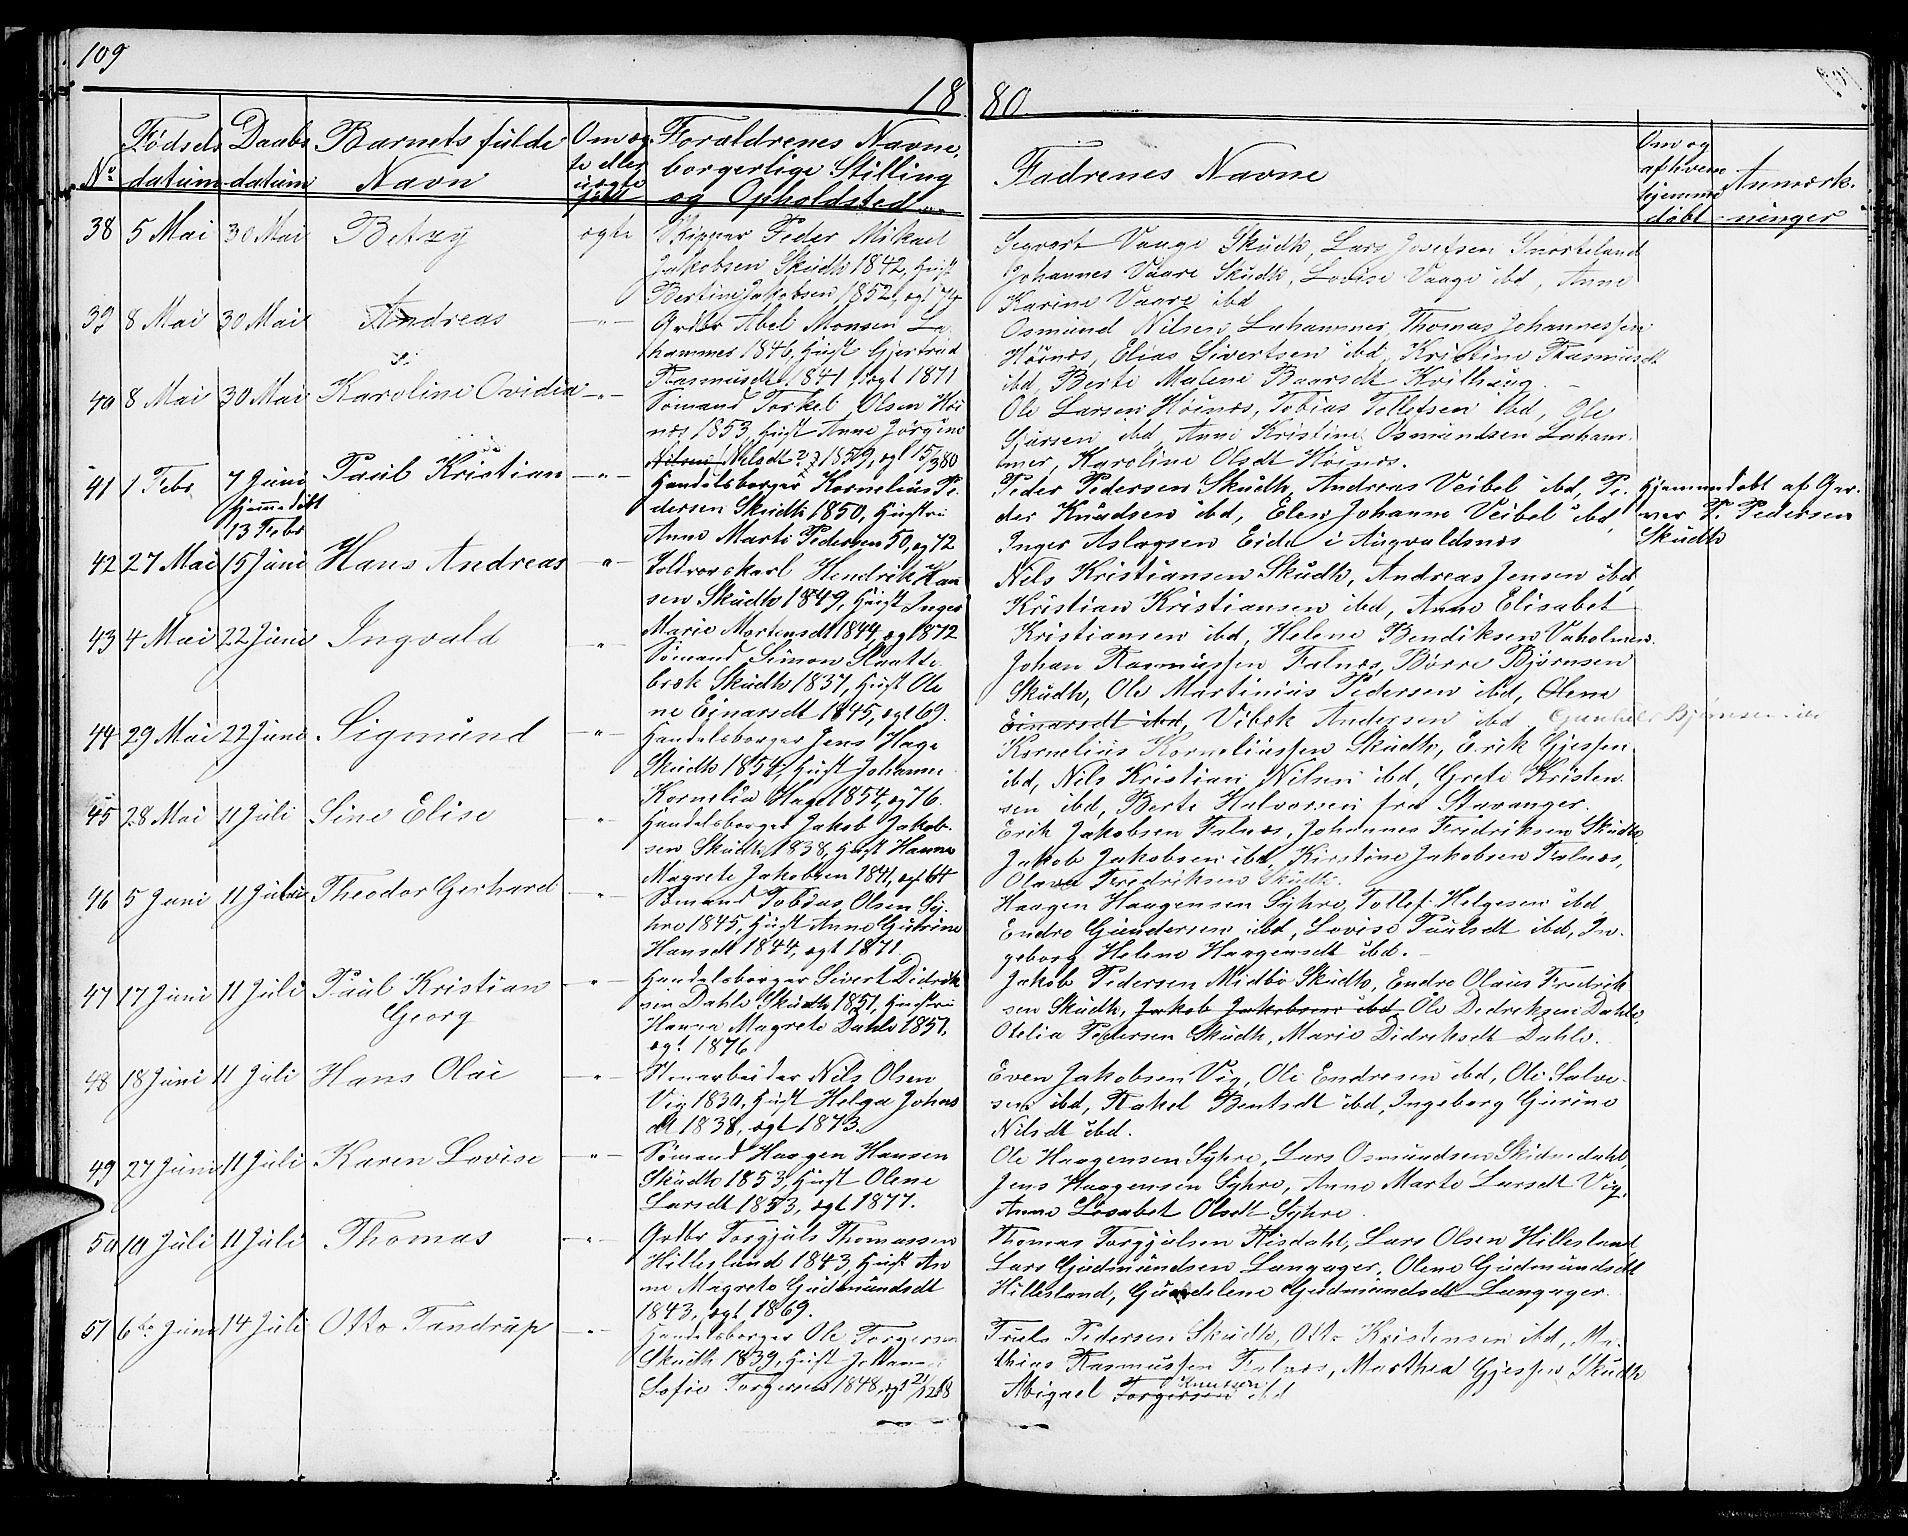 109
18 80.
No
Fødsels
datum
Daabs
datum
Barnets fulde
Navn
Om æg
te eller
uægte
født
Forældrenes Navne,
borgerlige Stilling
og Opholdsted
Fadrenes Navne
Om og
af hvem
hjemme
døbt
Anmærk-
ninger
38 5 Mai 30 Mai Betzy ægte Skipper Peder Mikael
Jakobsen Skudh 1842, Hust
Bertine Jakobsen 1852, ægt
Sivert Vaage Skudh, Lars Josefsen Snorteland
Johannes Vaare Skudh, Lovise Vaage ibd, Anne
Karine Vaare ibd
39 8 Mai 30 Mai Andreas -"- Grdbr Abel Monsen La
hammer 1846, Hust Gjertrud
Rasmusdt 1841 ægt 1871
Osmund Nilsen Lahammer, Thomas Johannessen
Høinæs, Elias Sivertsen ibd, Kristine Rasmusdt
ibd, Berte Malene Baarsdt Krilhaug.
40 8 Mai 30 Mai Karoline Ovidia -"- Sømand Torkel Olsen Høi
næs 1853, Hust Anne Jørgine
Nilsen Nilsdt 1859, ægt 15/3 80
Ole Larsen Høinæs, Tobias Tollefsen ibd, Ole
Sjursen ibd, Anne Kristine Osmundsen Laham
mer, Karoline Olsdt Høinæs.
41 1 Febr 7 Juni
Hjemmedøbt
13 Febr
Paul Kristian -"- Handelsborger Kornelius Pe
dersen Skudh 1850, Hustru
Anne Marte Pedersen 50, æg 72
Peder Pedersen Skudh, Andreas Veibel ibd, Pe
der Knudsen ibd, Elen Johanne Veibel ibd,
Inger Aslagsen Eide i Augvaldsnæs
Hjemmedøbt af Gar
ver P. Pedersen
Skudh
42 27 Mai 15 Juni Hans Andreas -"- Toldroerskarl Hendrik Han
sen Skudh 1849, Hust Inger
Marie Mortensdt 1844, ægt 1872
Nils Kristiansen Skudh, Andreas Jensen ibd,
Kristian Kristiansen ibd, Anne Elisabet
Kristiansen ibd, Helene Bendiksen Vaholmen.
43 4 Mai 22 Juni Ingvald -"- Sømand Simon Slaatte
bræk Skudh 1837, Hust Ole
ne Ejnarsdt 1845, ægt 69.
Johan Rasmussen Falnæs, Børre Bjørnsen
Skudh, Ole Martinius Pedersen ibd, Olene
Einarsdt ibd, Vibek Andersen ibd, Gunhild Bjørnsen ibd
44 29 Mai 22 Juni Sigmund -"- Handelsborger Jens Hage
Skudh 1854, Hust Johanne
Kornelia Hage 1854, æg 76.
Kornelius Korneliussen Skudh, Erik Gjessen
ibd, Nils Kristian Nilsen ibd, Grete Kristen
sen ibd, Berte Halvorsen fra Stavanger.
45 28 Mai 11 Juli Sine Elise -"- Handelsborger Jakob Jakob
sen Skudh 1838, Hust Hanne
Magrete Jakobsen 1841, ægt 64
Erik Jakobsen Falnæs, Johannes Fredriksen Skudh,
Jakob Jakobsen ibd, Kirstine Jakobsen Falnæs,
Olava Fredriksen Skudh.
46 5 Juni 11 Juli Theodor Gerhard -"- Sømand Tobias Olsen Sy
hre 1845, Hust Anne Gurine
Hansdt 1844, ægt 1871.
Haagen Haagensen Syhre, Tollef Helgesen ibd,
Endre Gundersen ibd, Lovise Paulsdt ibd, In
geborg Helene Haagensdt ibd.
47 17 Juni 11 Juli Paul Kristian
Georg
-"- Handelsborger Sivert Didrik
sen Dahle Skudh 1851, Hustru
Hanna Magrete Dahle 1857,
ægt 1876.
Jakob Pedersen Midbø Skudh, Endre Olaus Fredrik
sen Skudh, Jakob Jakobsen ibd, Ole Dedriksen Dahle,
Otelia Pedersen Skudh, Marie Didriksdt Dahle.
48 18 Juni 11 Juli Hans Olai -"- Stenarbeider Nils Olsen
Vig 1830, Hust Helga Johns
dt 1838, ægt 1873.
Even Jakobsen Vig, Ole Endresen ibd, Ole Salve
sen ibd, Rakel Bentsdt ibd, Ingeborg Gurine
Nilsdt ibd.
49 27 Juni 11 Juli Karen Lovise -"- Sømand Haagen Hansen
Skudh 1853, Hust Olene
Larsdt 1853, ægt 1877.
Ole Haagensen Syhre, Lars Osmundsen Skidnedahl,
Jens Haagensen Syhre, Anne Marte Larsdt Vig,
Anne Lisabet Olsdt Syhre.
50 10 Juli 11 Juli Thomas -"- Grdbr Torgjuls Thomassen
Hillesland 1843, Hust An
ne Magrete Gudmundsdt
1843, ægt 1869.
Thomas Torgjulsen Risdahl, Lars Olsen Hillesland,
Lars Gudmundsen Langager, Olene Gudmundsdt
Hillesland, Gundelene Gudmundsdt Langager.
51 6te Juni 14 Juli Otto Tandrup -"- Handelsborger Ole Torgersen
Skudh 1839, Hust Johanne
Sofie Torgersen 1848, ægt
Truls Pedersen Skudh, Otto Kristensen ibd, Ma
thias Rasmussen Falnæs, Marthea Gjessen Skudh
Abigael Torgersen Knutsen ibd